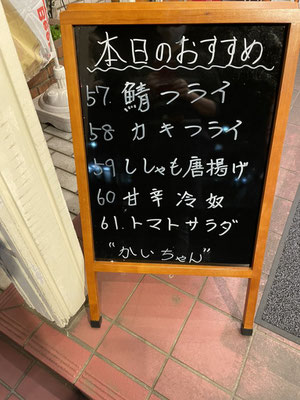 本日のおすすめ
57. 鯖フライ
58 カキフライ
59 ししゃも唐揚げ
60 甘辛冷奴
61. トマトサラダ
"かいちゃん"